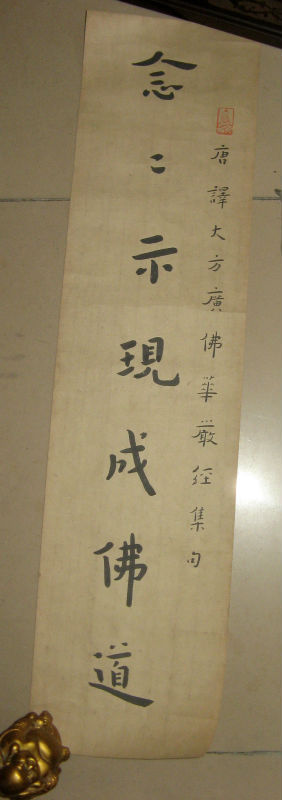 唐譯大方廣佛華嚴經集句
念〻示現成佛道